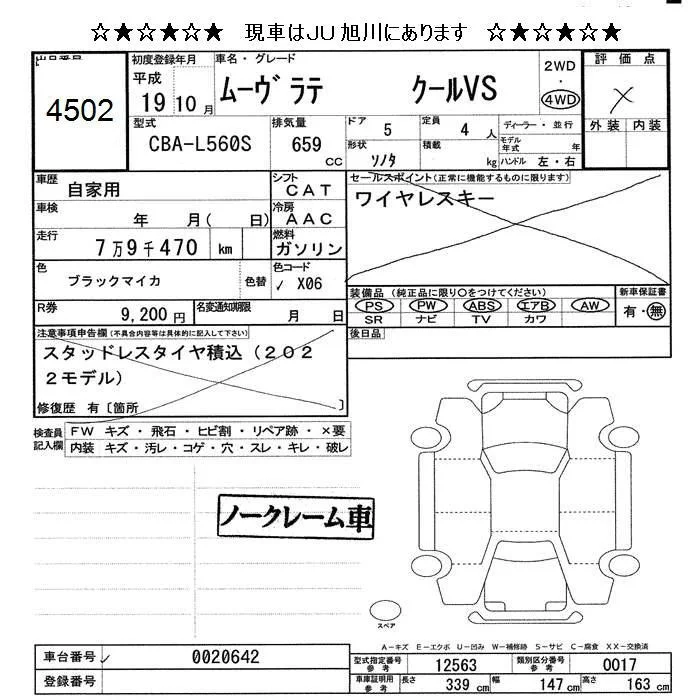 ☆★☆★☆★ 現車はJU旭川にあります ☆★☆★☆★
4502
初度登録年月 平成 19 10 月
車名・グレード ムーヴ ラテ クールVS
2WD ・ 4WD
評価点
外装 内装
型式 CBA-L560S
排気量 659 CC
ドア 5
定員 4 人
ディーラー・並行
形状 ソノタ
積載 kg
モデル年式 年
ハンドル 左・右
車歴 自家用
シフト CAT
セールスポイント(正常に機能するものに限ります)
ワイヤレスキー
車検 年 月( 日)
冷房 AAC
走行 7万9千470 km
燃料 ガソリン
色 ブラックマイカ 色替
色コード ✓ X06
装備品(純正品に限り〇をつけてください)
新車保証書
PS PW ABS エアB AW
SR ナビ TV カワ
有・無
R券 9,200 円
名変通知期限 月 日
後日品
注意事項申告欄(不具合内容等は具体的に記入して下さい)
スタッドレスタイヤ積込(202
2モデル)
修復歴 有〔箇所 〕
検査員記入欄
FW キズ・飛石・ヒビ割・リペア跡・×要
内装 キズ・汚レ・コゲ・穴・スレ・キレ・破レ
ノークレーム車
スペア
A-キズ E-エクボ U-凹み W-補修跡 S-サビ C-腐食 XX-交換済
車台番号 ✓ 0020642
型式指定番号 参考 12563
類別区分番号 参考 0017
登録番号
車庫証明用 参考 長さ 339 cm 幅 147 cm 高さ 163 cm